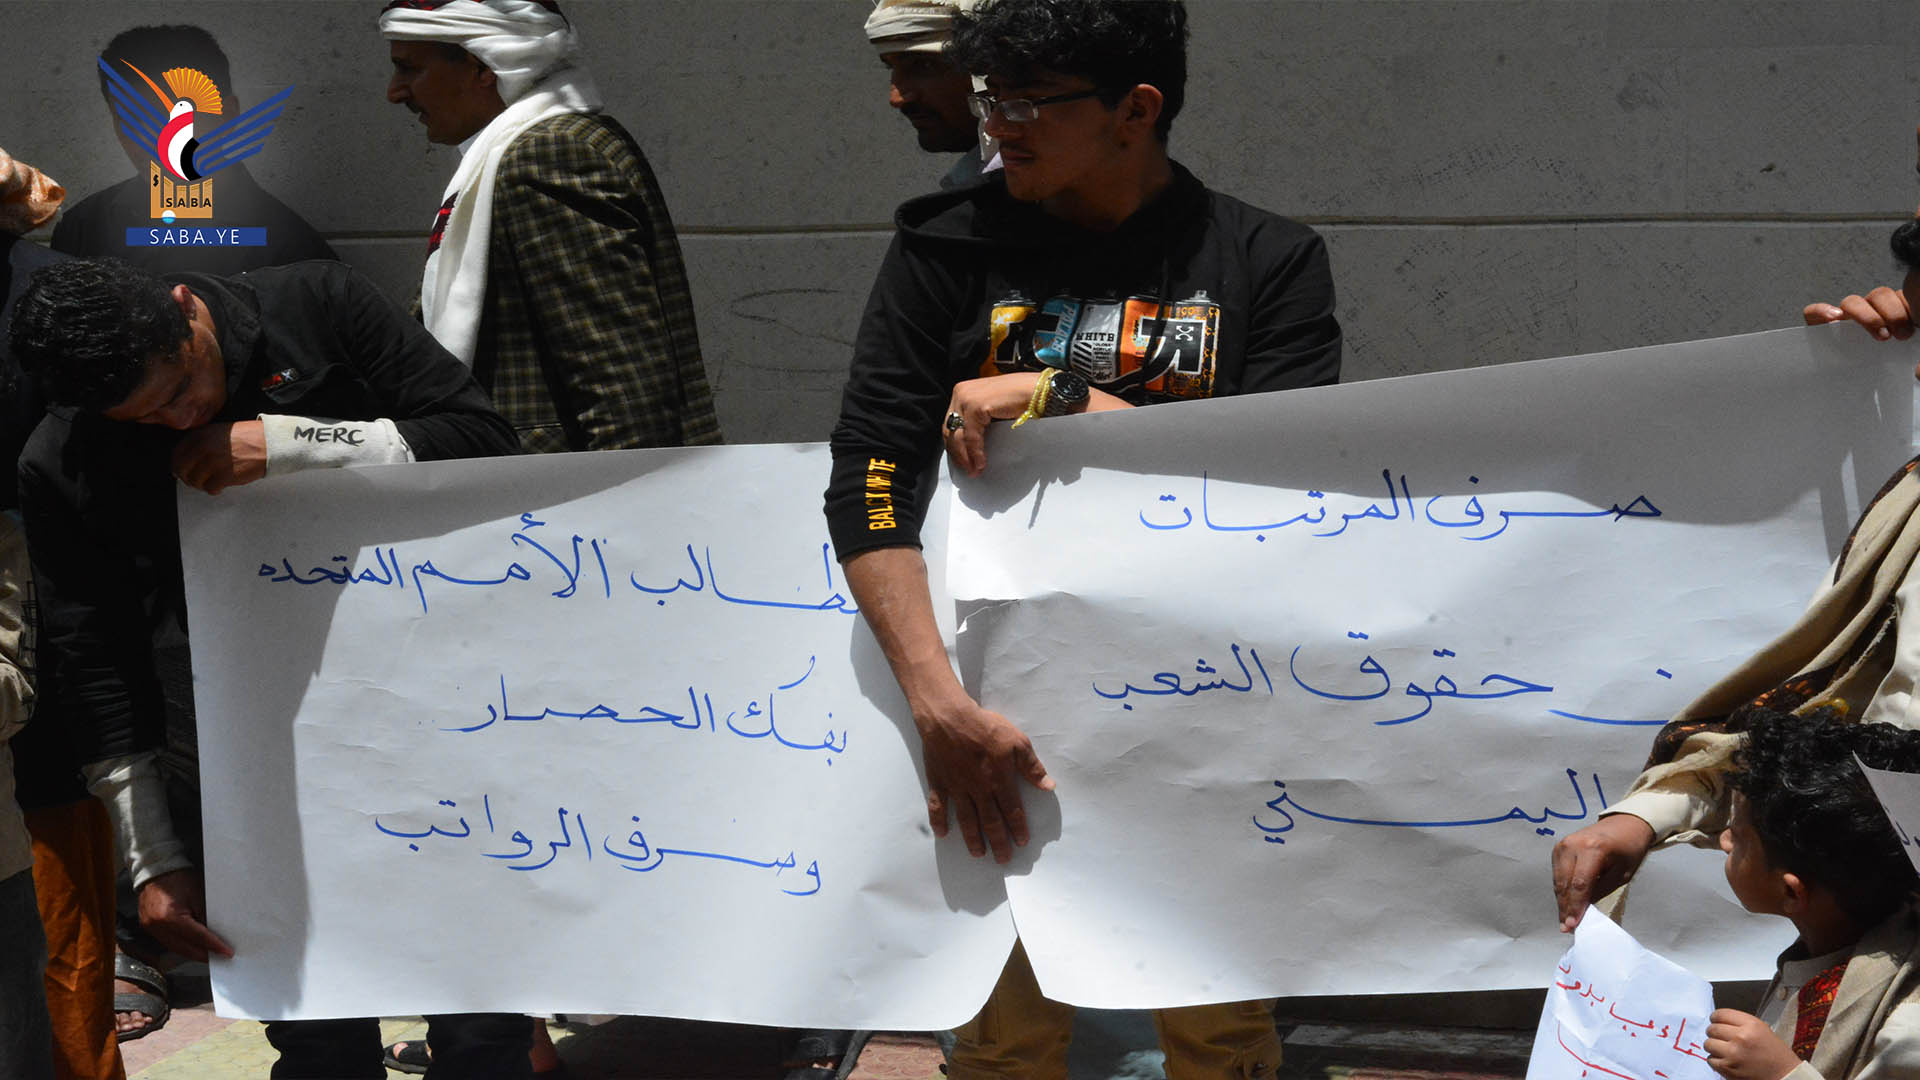 SABA
SABA.YE
MERC
WHITE
BALCK WHITE
صرف المرتبات
حقوق الشعب
اليمني
الأمم المتحده
بفك الحصار
وصرف الرواتب